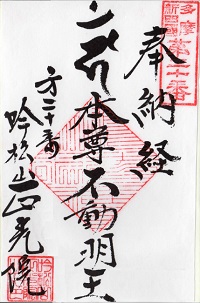 多摩
新四國
第二十番
奉納経
本尊不動明王
第二十番
吟松山正光院